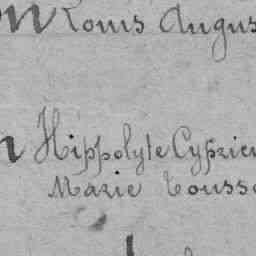 Louis Augus
Hippolyte Cyprien
Marie Touss